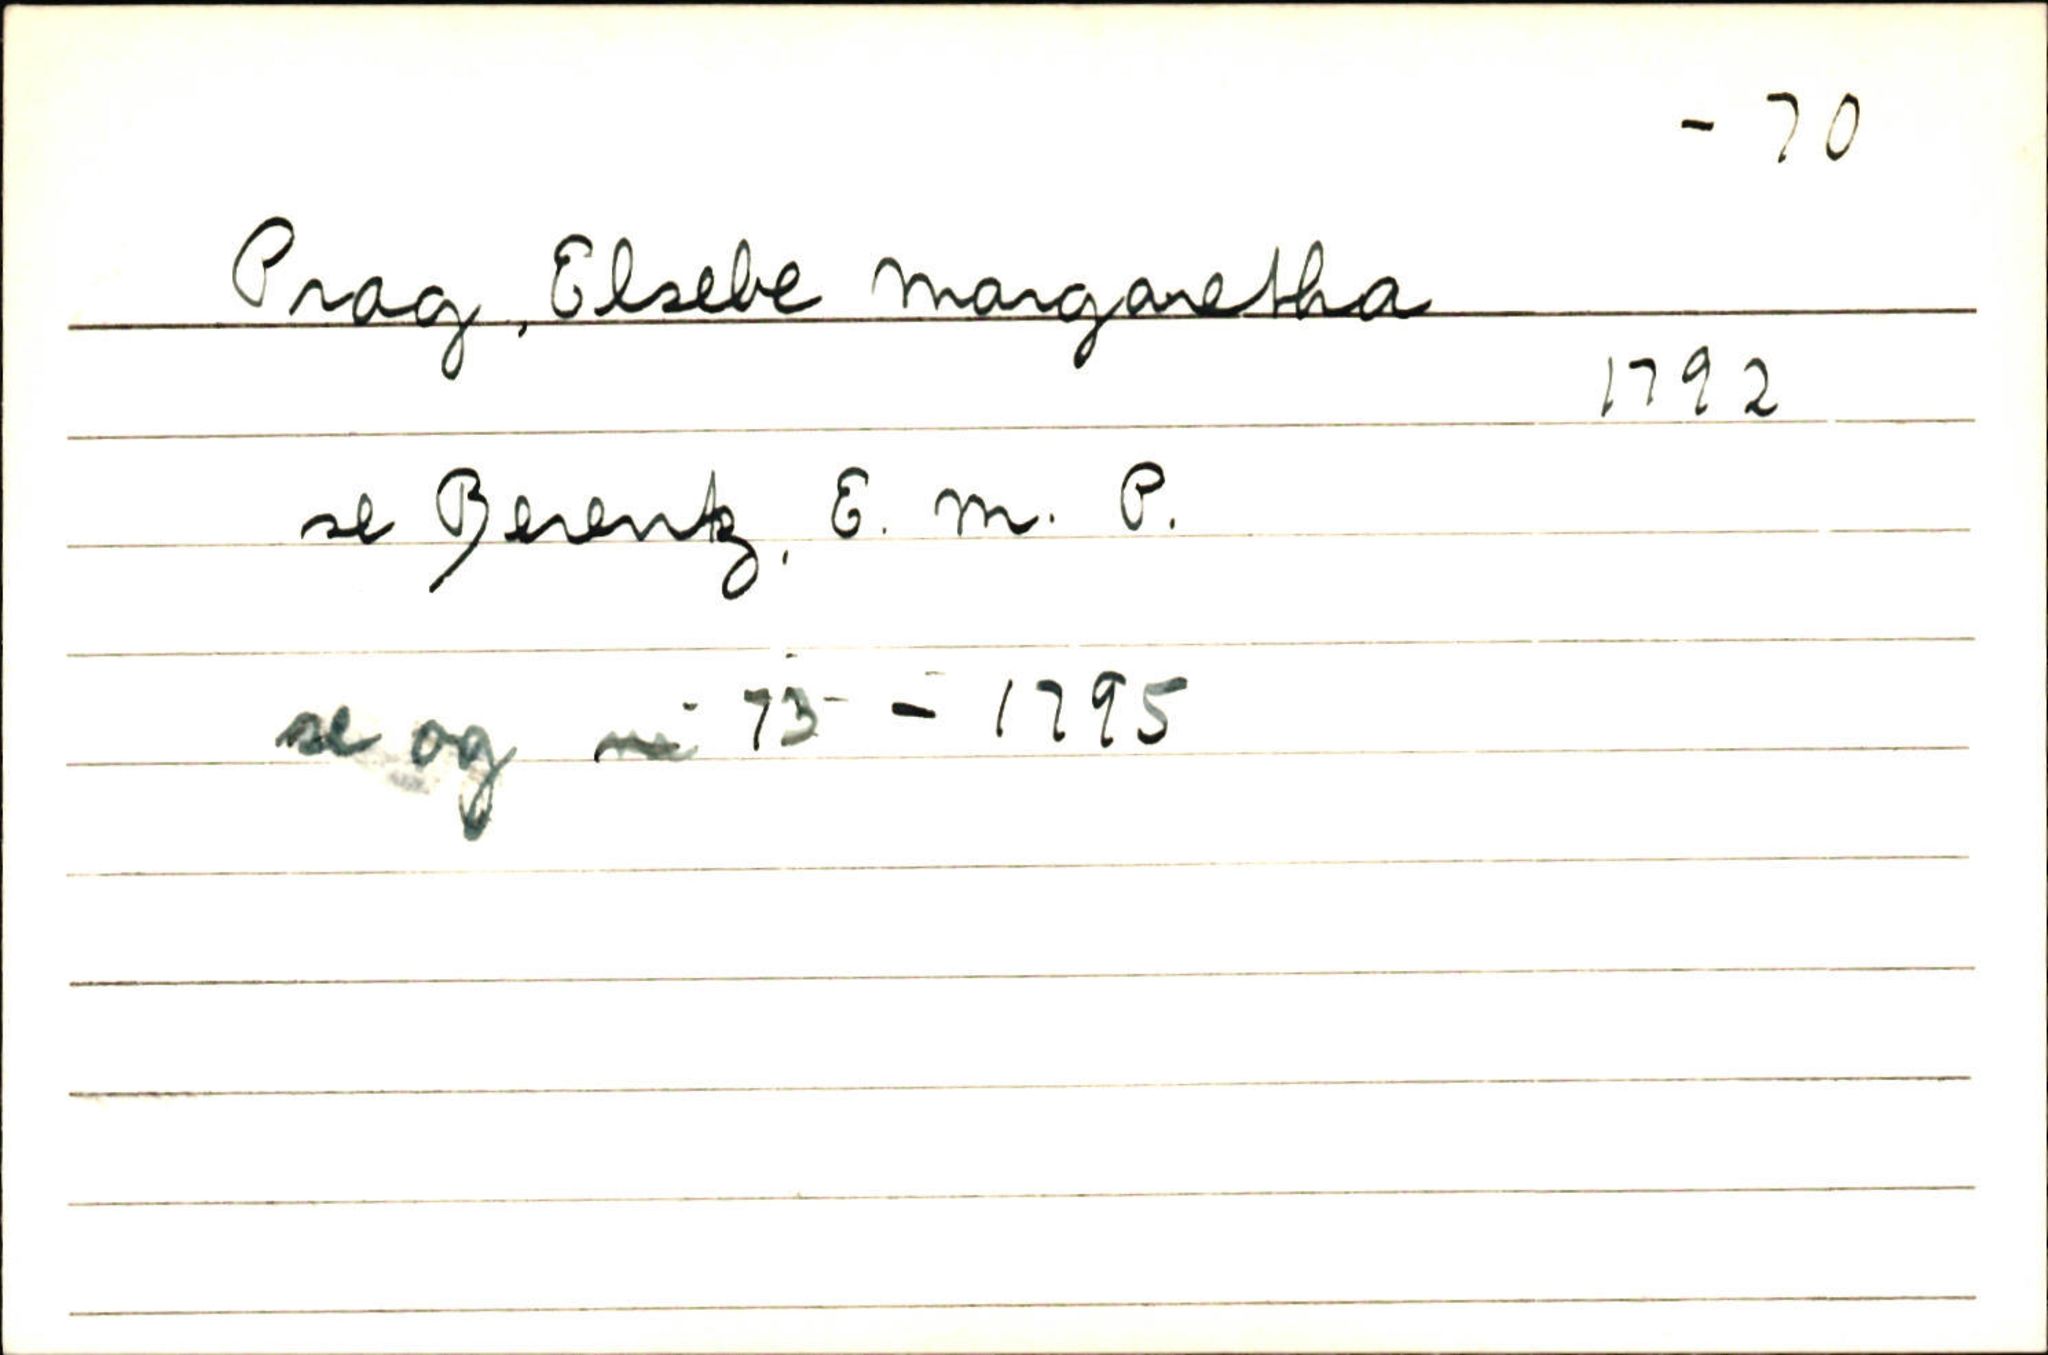 - 70
Prag, Elsebe Margaretha
1792
se Berentz, E. M. P.
se og 73 - 1795